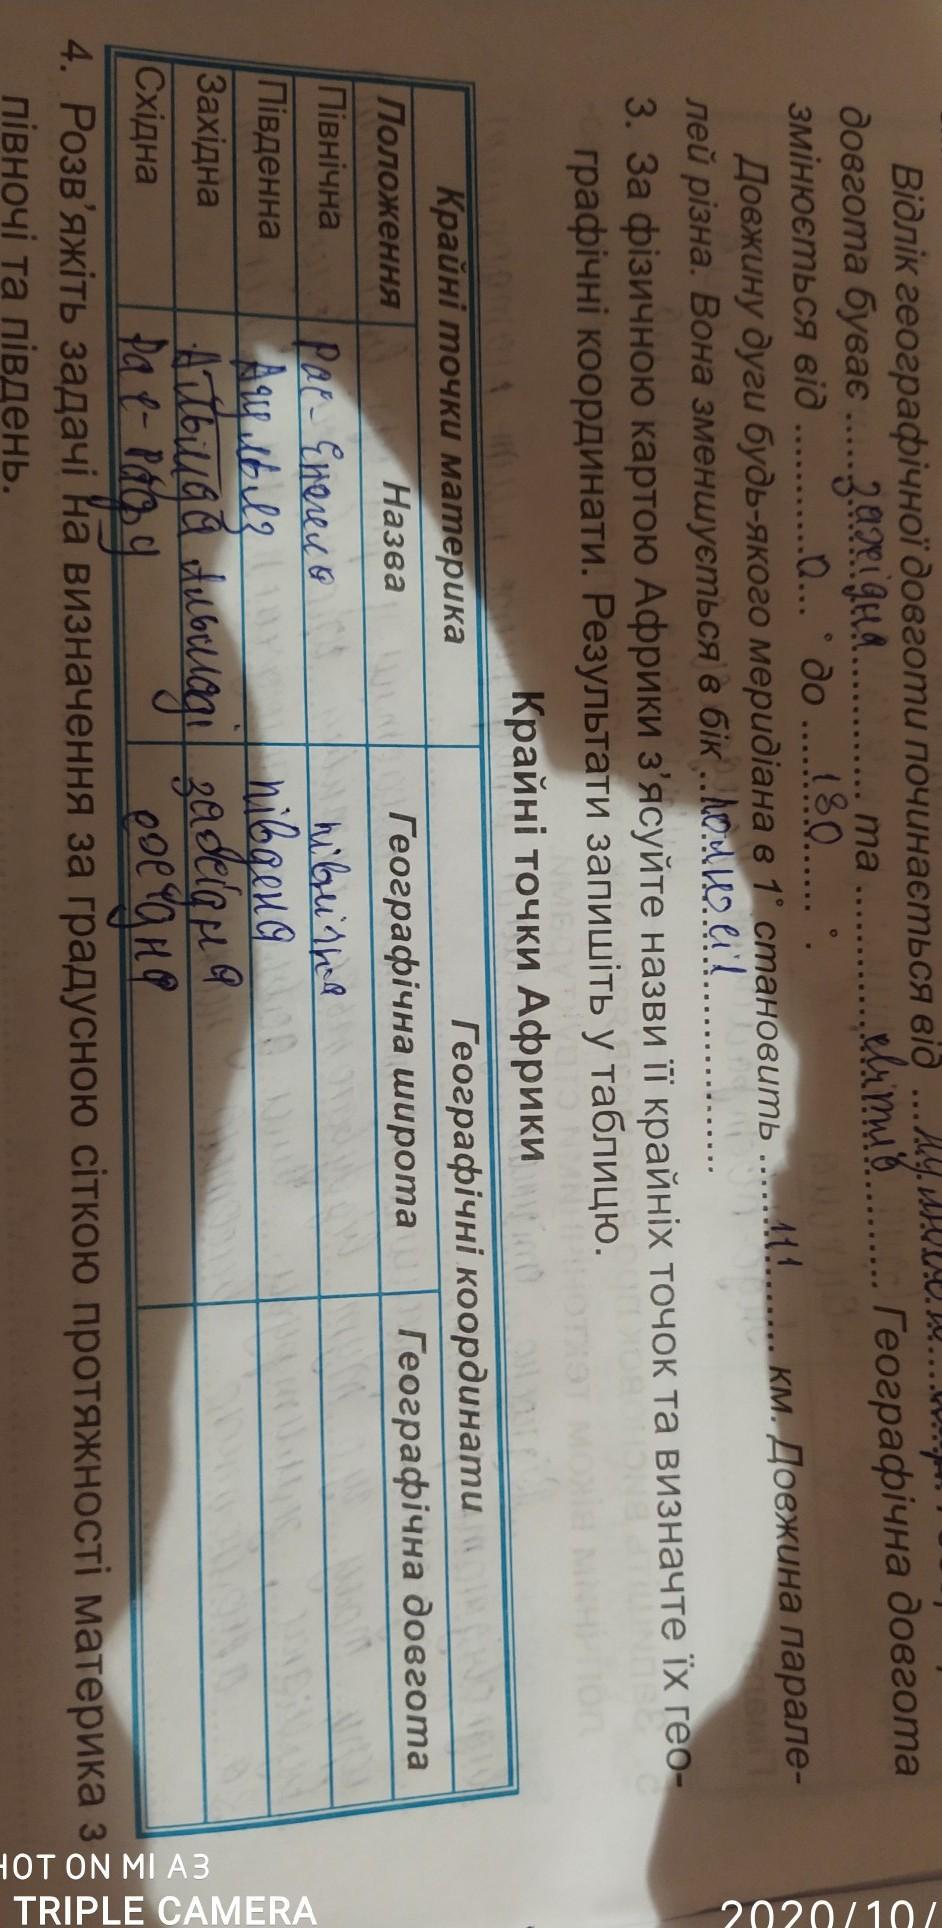 Відлік географічної довготи починається від
довгота буває ..... західна ............ та ............ східна ............ Географічна довгота
змінюється від ............ 0 ...° до ...... 180 ......°.
Довжину дуги будь-якого меридіана в 1° становить ...... 111 ...... км. Довжина парале-
лей різна. Вона зменшується в бік .. полюсів ..................
3. За фізичною картою Африки з'ясуйте назви її крайніх точок та визначте їх гео-
графічні координати. Результати запишіть у таблицю.
Крайні точки Африки
Крайні точки материка Географічні координати
Положення Назва Географічна широта Географічна довгота
Північна Рас-Енгела північна
Південна південа
Західна Альмаді західна
Східна
4. Розв'яжіть задачі на визначення за градусною сіткою протяжності материка з
півночі та південь.
SHOT ON MI A3
TRIPLE CAMERA
2020/10/